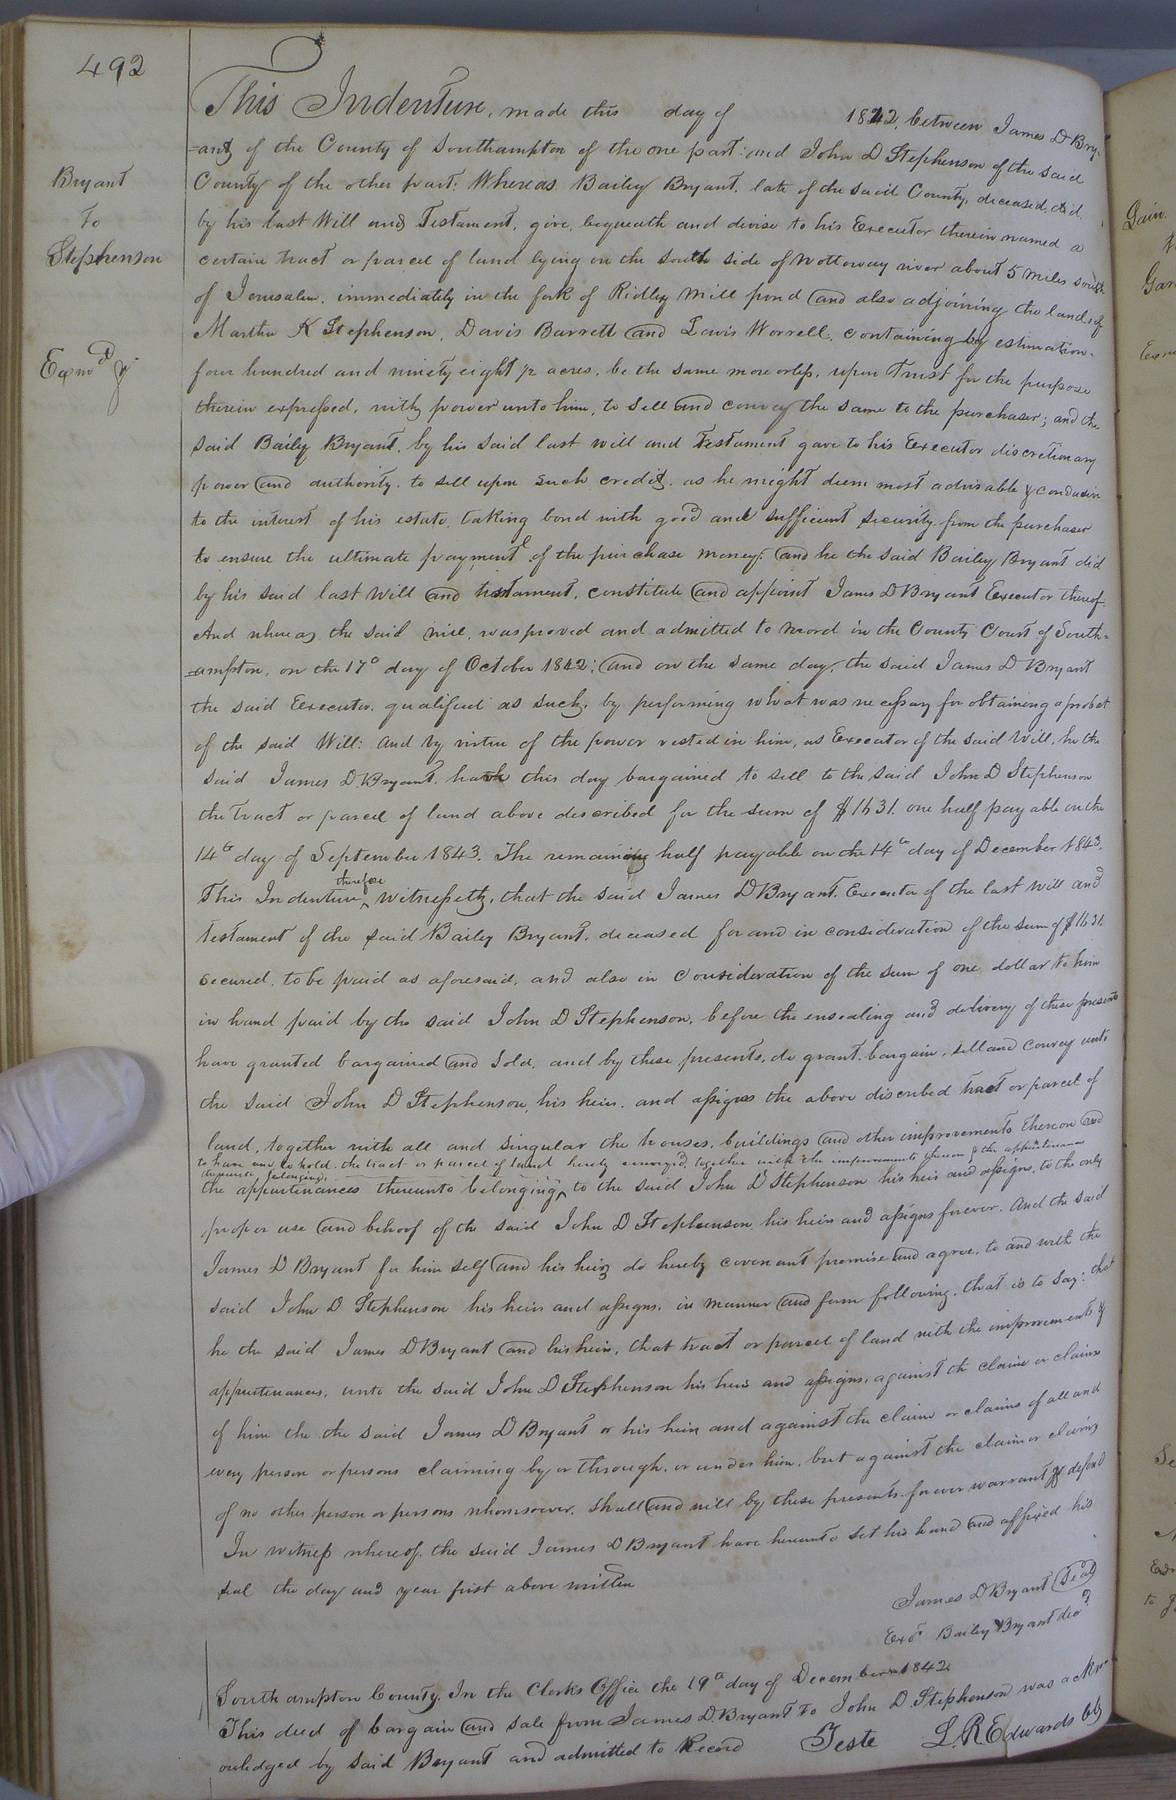 492
Bryant
To
Stephenson
Exmd
This Indenture, made this day of 1842, between James D Bry-
-ant of the County of Southampton of the one part and John D Stephenson of the said
County of the other part: Whereas, Bailey Bryant, late of the said County, deceased, did
by his last Will and Testament, give, bequeath and devise to his Executor therein named a
certain tract or parcel of land lying on the south side of Nottoway river about 5 miles south
of Jerusalem, immediately in the fork of Ridley Mill pond and also adjoining the lands of
Martha K Stephenson, Davis Barrett and Lewis Worrell, containing by estimation
four hundred and ninety eight ½ acres, be the same more or less, upon Trust for the purpose
therein expressed, with power unto him, to sell and convey the same to the purchaser; and the
said Bailey Bryant, by his said last will and Testament gave to his Executor discretionary
power and authority, to sell upon such credit, as he might deem most advisable & conducive
to the interest of his estate, taking bond with good and sufficient security from the purchaser
to ensure the ultimate payment of the purchase money: and he the said Bailey Bryant did
by his said last will and testament, constitute and appoint James D Bryant Executor thereof
And whereas the said will, was proved and admitted to record in the County Court of South-
-ampton, on the 17th day of October 1842; and on the same day, the said James D Bryant
the said Executor, qualified as such, by performing what was necessary for obtaining a probat
of the said Will: And by virtue of the power vested in him, as Executor of the said Will, he the
said James D Bryant, hath this day bargained to sell to the said John D Stephenson
the tract or parcel of land above described for the sum of $1631. one half payable on the
14th day of September 1843. The remaining half payable on the 14th day of December 1843.
therefore
This Indenture witnesseth, that the said James D Bryant, Executor of the last will and
testament of the said Bailey Bryant, deceased for and in consideration of the sum of $1631.
secured, to be paid as aforesaid, and also in consideration of the sum of one dollar to him
in hand paid by the said John D Stephenson, before the ensealing and delivery of these presents
have granted bargained and sold, and by these presents, do grant, bargain, sell and convey unto
the said John D Stephenson, his heirs, and assigns the above discribed tract or parcel of
land, together with all and singular the houses, buildings and other improvements thereon and
to have and to hold, the tract or parcel of land hereby conveyed, together with the improvements thereon & the appurtenances
thereunto belonging,
the appurtenances thereunto belonging, to the said John D Stephenson his heirs and assigns, to the only
proper use and behoof of the said John D Stephenson, his heirs and assigns forever. And the said
James D Bryant for him self and his heirs do hereby covenant promise and agree, to and with the
said John D Stephenson his heirs and assigns, in manner and form following, that is to say: that
he the said James D Bryant and his heirs, that tract or parcel of land with the improvements &
appurtenances, unto the said John D Stephenson his heirs and assigns, against the claim or claims
of him the the said James D Bryant or his heirs and against the claim or claims of all and
every person or persons claiming by or through, or under him, but against the claim or claims
of no other person or persons whomsoever, shall and will by these presents forever warrant & defend
In witness whereof, the said James D Bryant have hereunto set his hand and affixed his
seal the day and year first above written
James D Bryant Seal
Exor Bailey Bryant decd
Southampton County. In the Clerks Office the 19th day of December 1842.
This deed of bargain and sale from James D Bryant to John D Stephenson was ackn-
owledged by said Bryant and admitted to Record Teste L. R Edwards clk